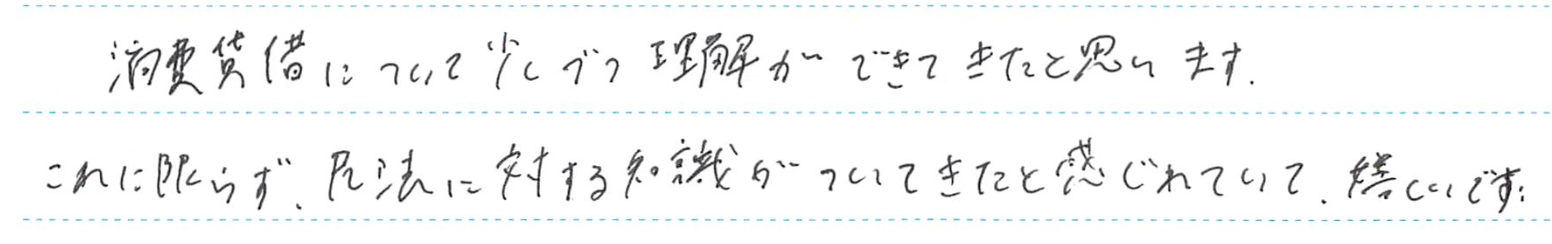 消費貸借について少しづつ理解ができてきたと思います.
これに限らず、民法に対する知識がついてきたと感じれていて、嬉しいです.